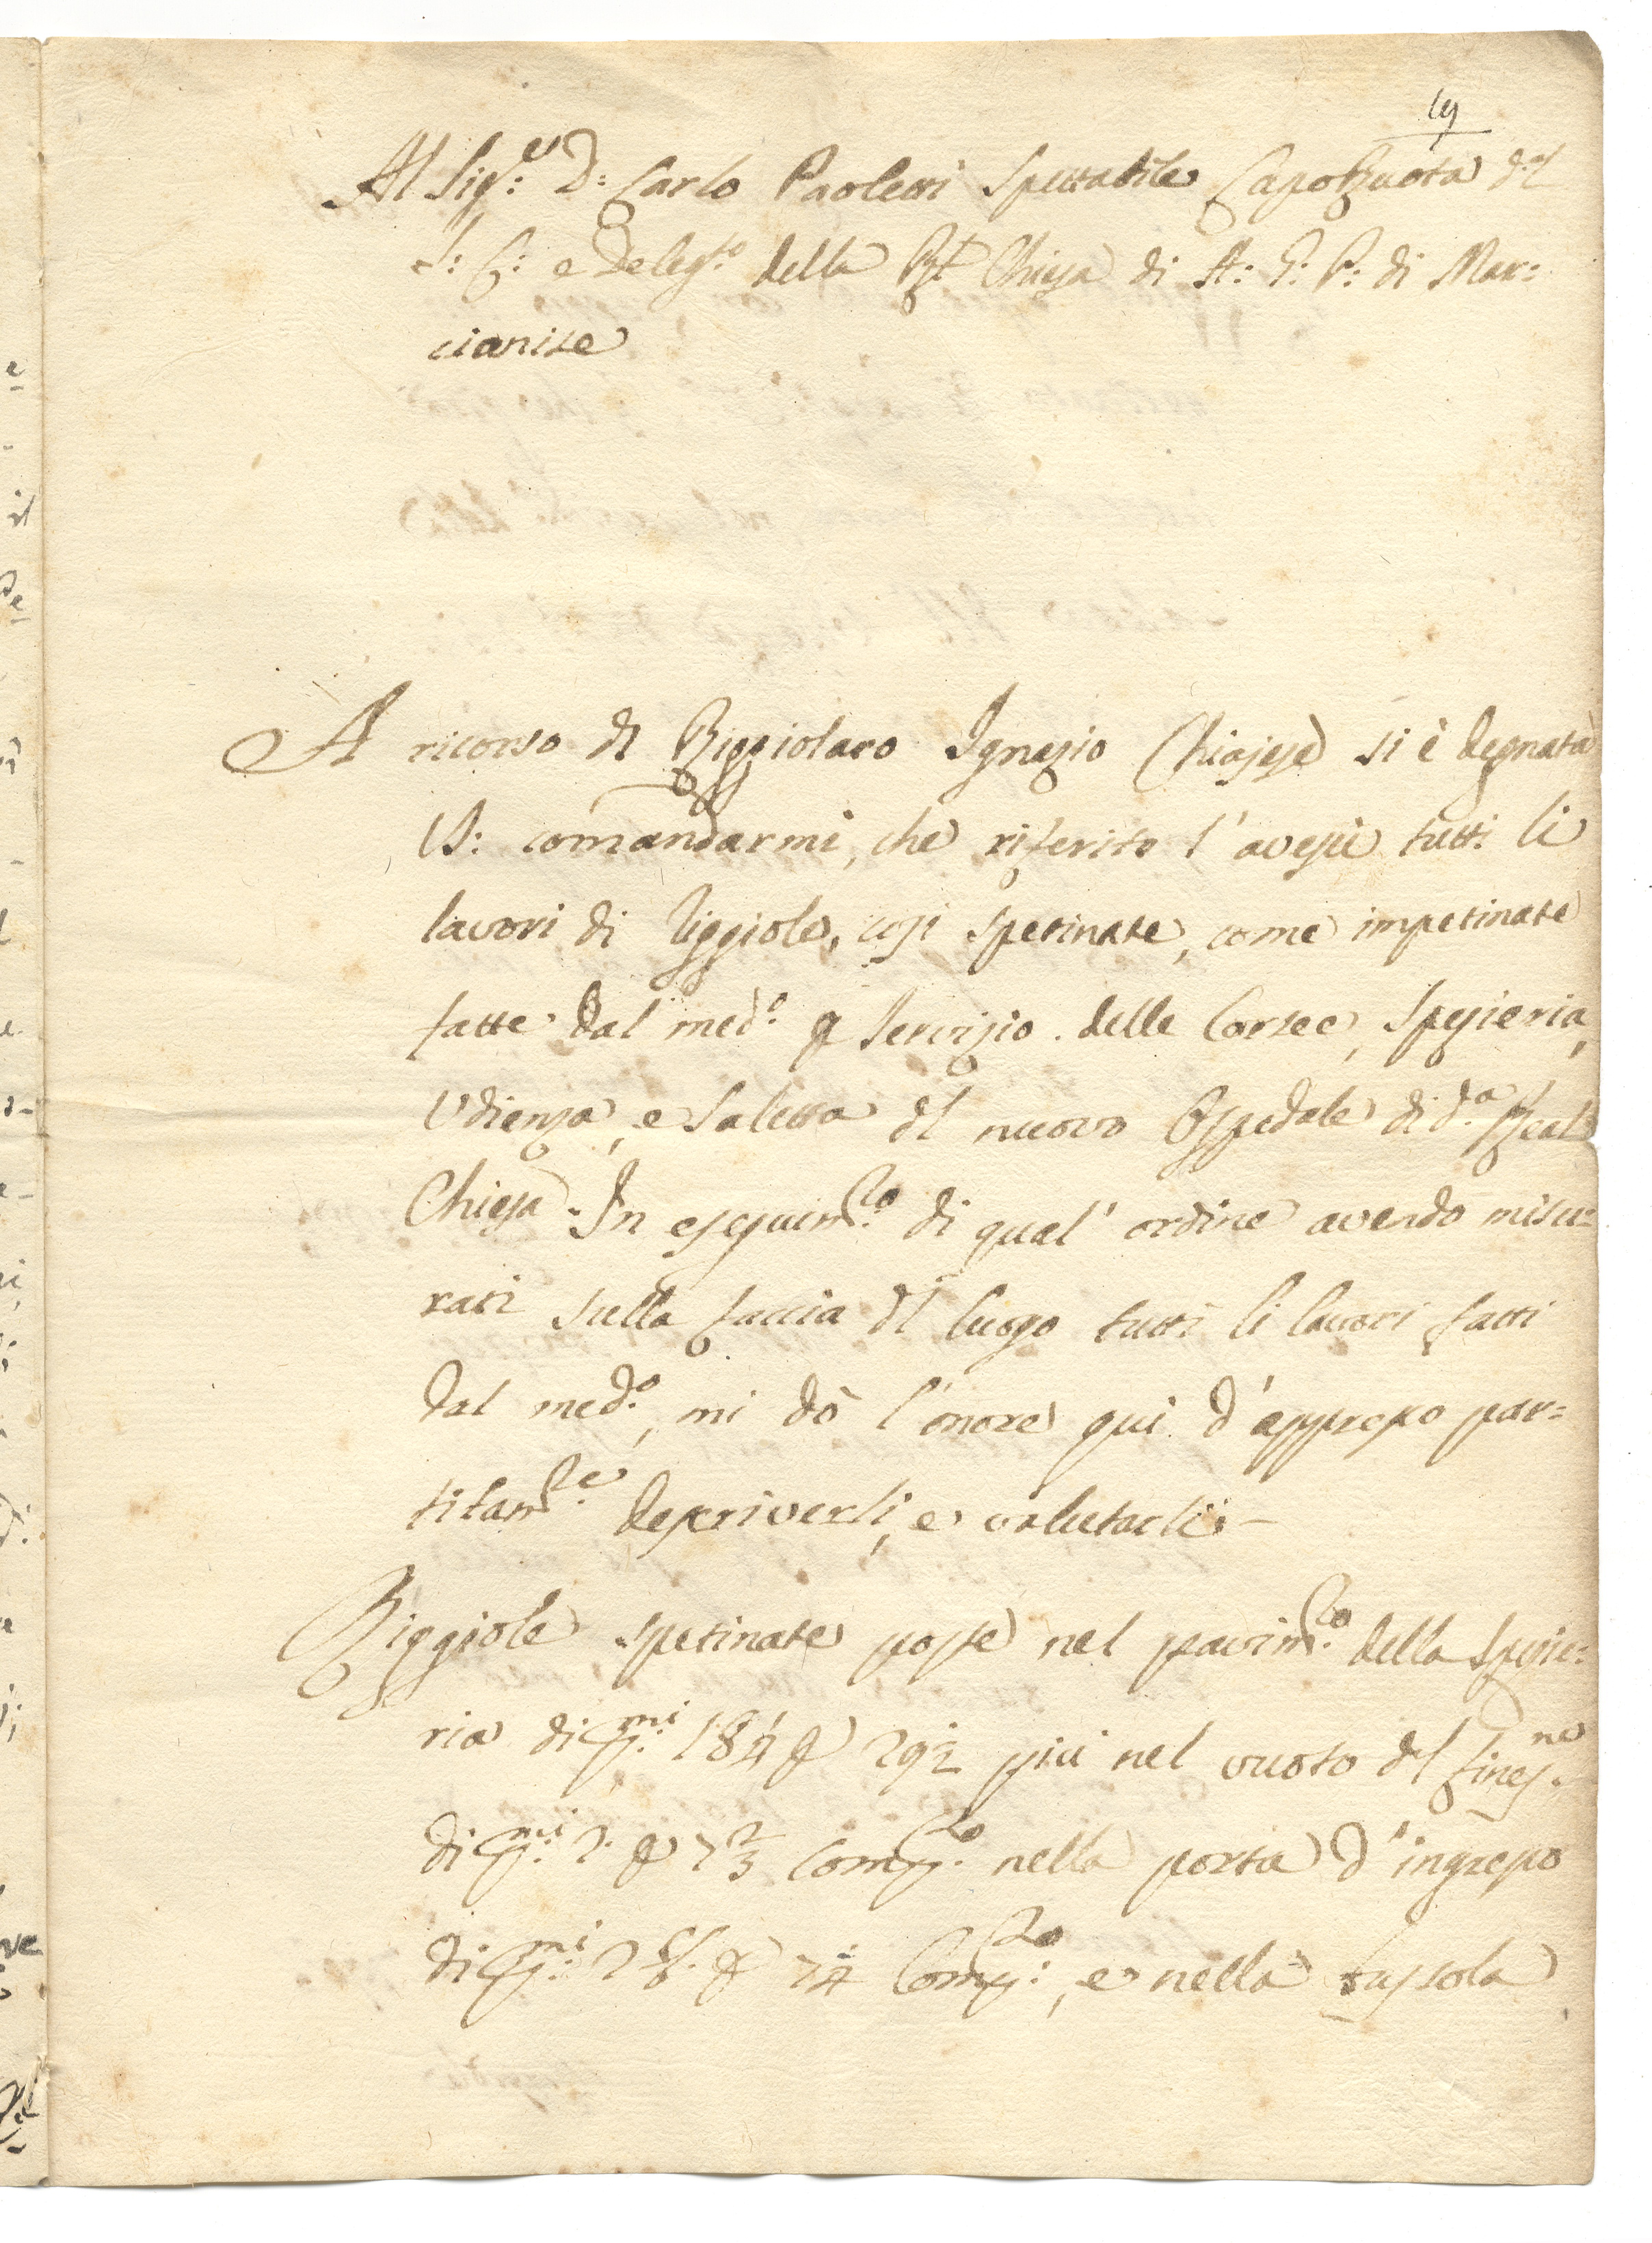 19
Al Sig.re D: Carlo Paoletti Spettabile CapoRuota del
S: C: e Deleg.to della R.l Chiesa di A: G: P: di Mar=
cianise
A ricorso dl Riggiolaro Ignazio Chiajese si è degnata
VS: comandarmi, che riferito l'avessi tutti li
lavori di riggiole, così spetinate, come impetinate
fatte dal med.o p servizio delle Corsee, Spezieria,
Udienza, e Saletta dl nuovo Ospedale di d.a Real
Chiesa. In eseguim.to di qual' ordine avendo misu=
rati sulla faccia dl luogo tutti li lavori fatti
dal med.o, mi dò l'onore qui d'appresso par=
titam.te descriverli, e valutarli. –
Riggiole spetinate poste nel pavim.to della Spezie=
ria di p.mi 18¼ p 29½ più nel vuoto dl fines.ne
di p.mi 7. p 7⅔ Comp.to nella porta d'ingresso
di p.mi p 7¼ Comp.to, e nella bussola